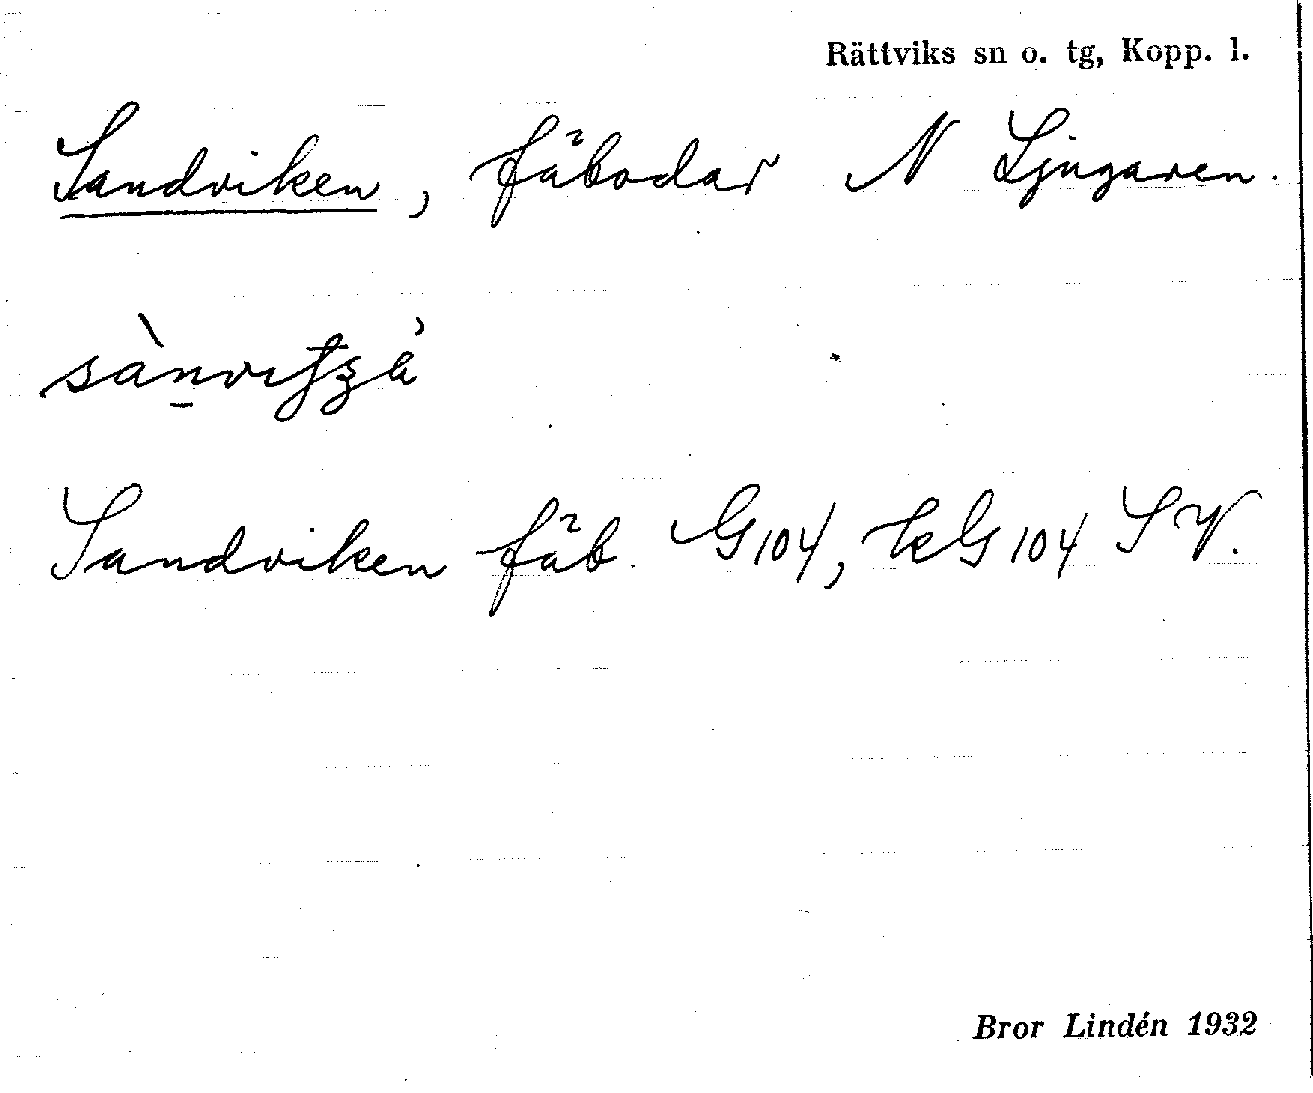 Rättviks sn o. tg, Kopp. l.
Sandviken, fäbodar N Ljugaren.
Sandviken fäb. G104, kG104 SV.
Bror Lindén 1932